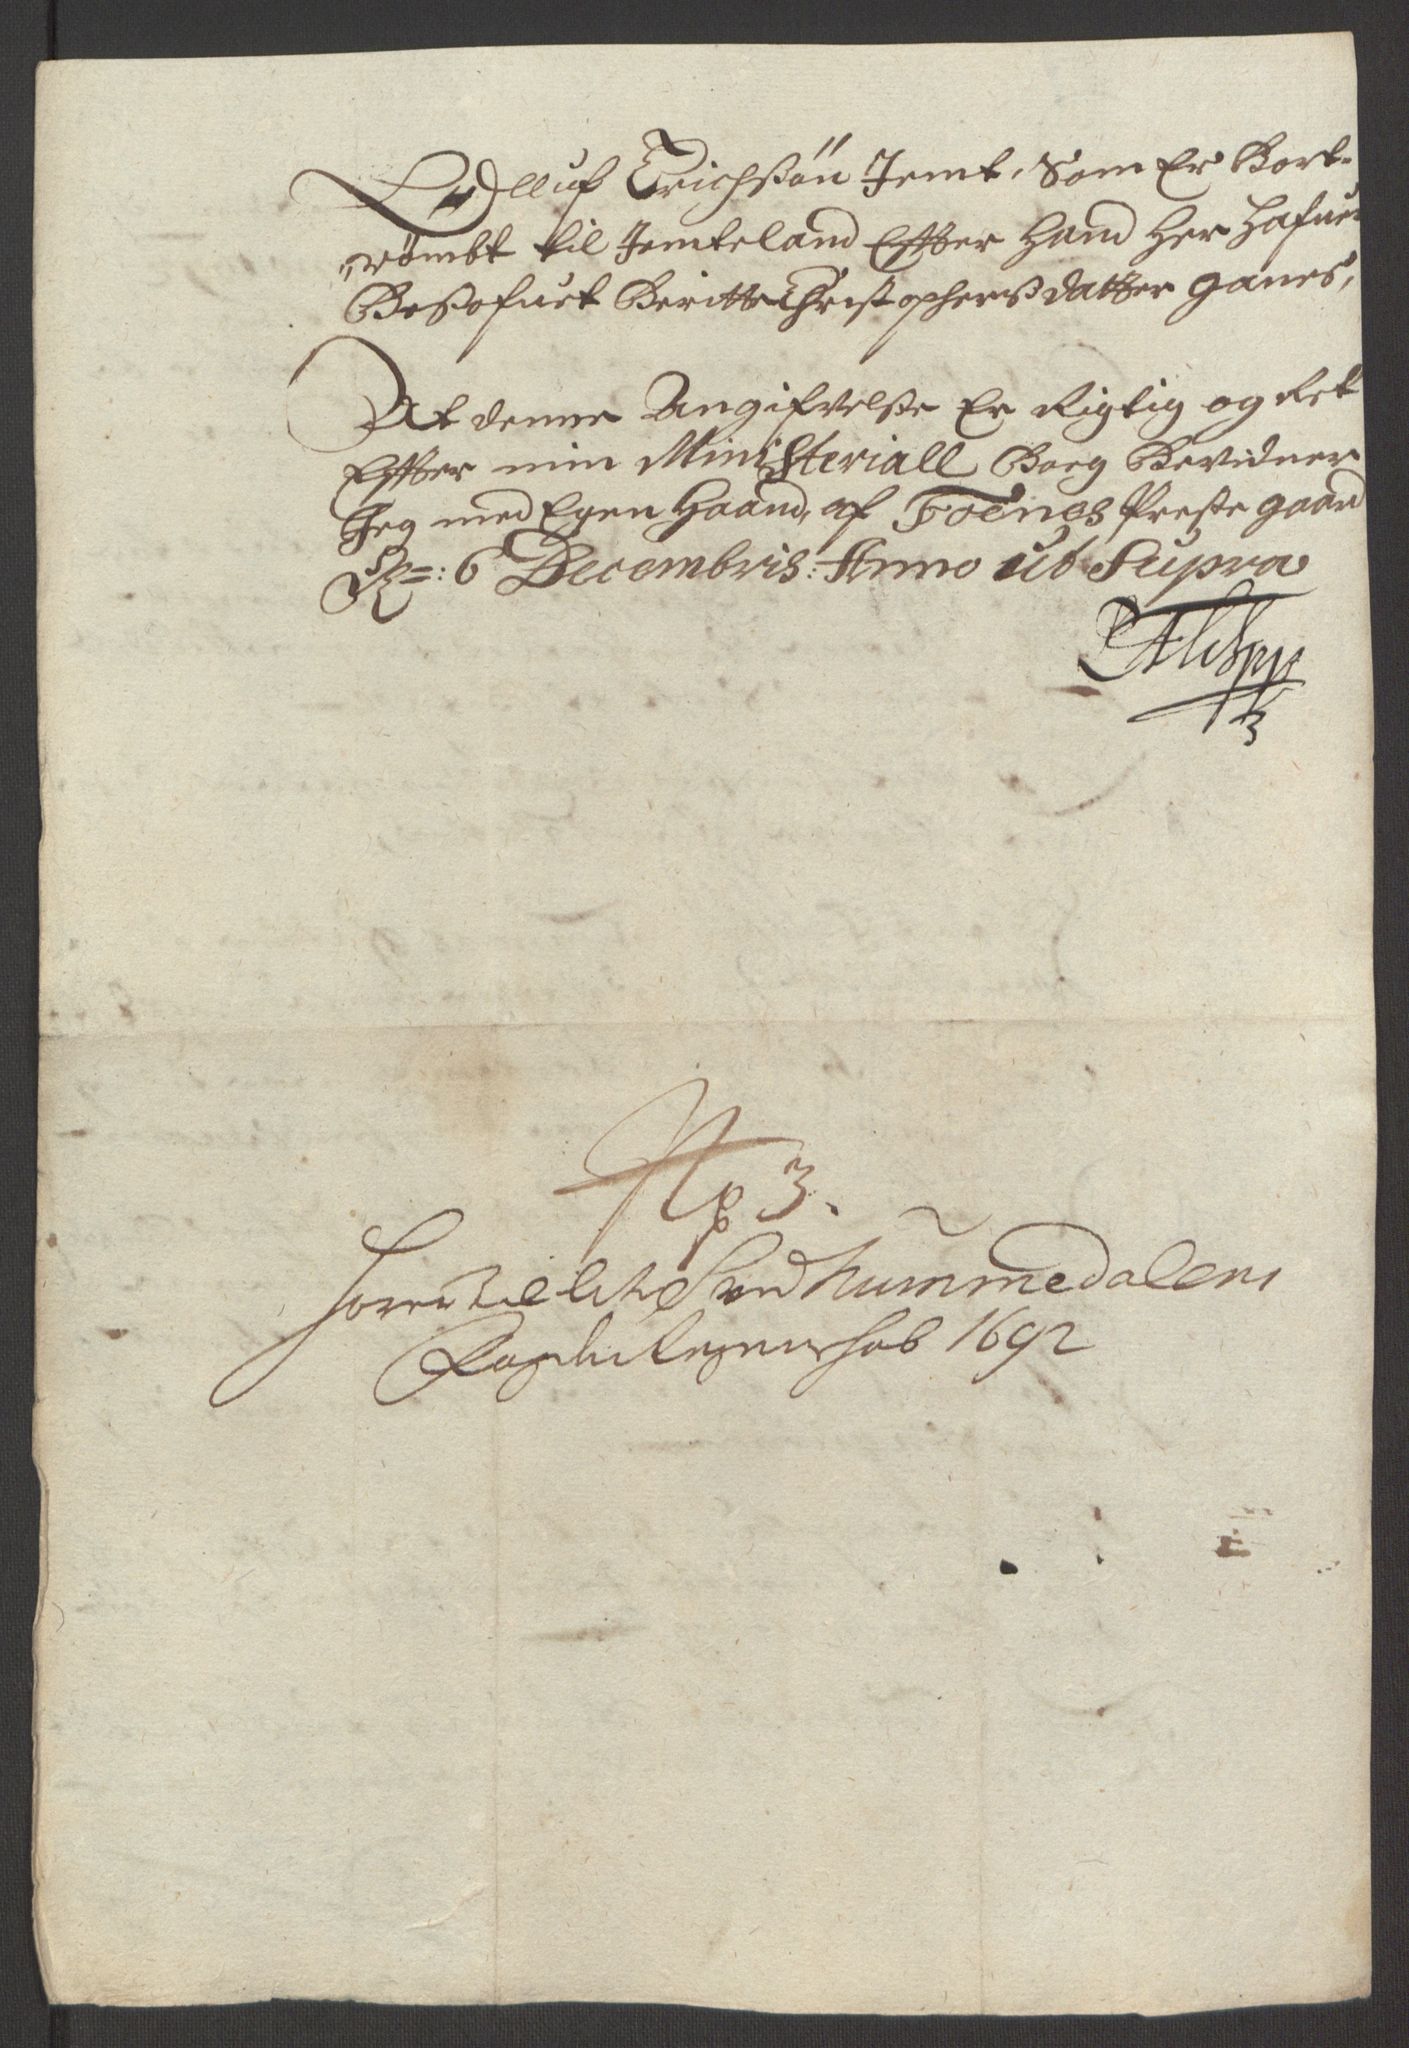 Olluf Erichsøn Jemt, Som Er Bort-
rømbt til Jemteland Effter Hand Her Hafuer
Besofuet Beritte Christophersdatter Ganes,
At denne Angifvelse Er Rigtig og Ret
Effter min Ministeriall Boeg Bevidner
Jeg med Egen Haand, af Foenes Præste gaard
6 Decembris: Anno ut Supra
No 3.
Nummedalens
Fogderi Regenschab 1692